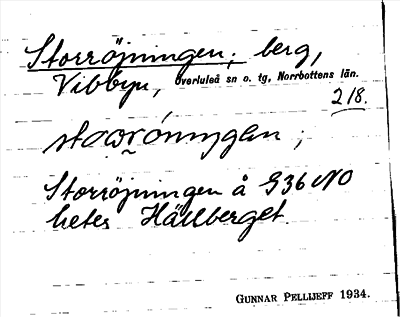 Storröjningen; berg,
Vibbyn, Överluleå sn o. tg, Norrbottens län.
218.
Storröjningen å G36 NO
heter Hällberget.
GUNNAR PELLIJEFF 1934.